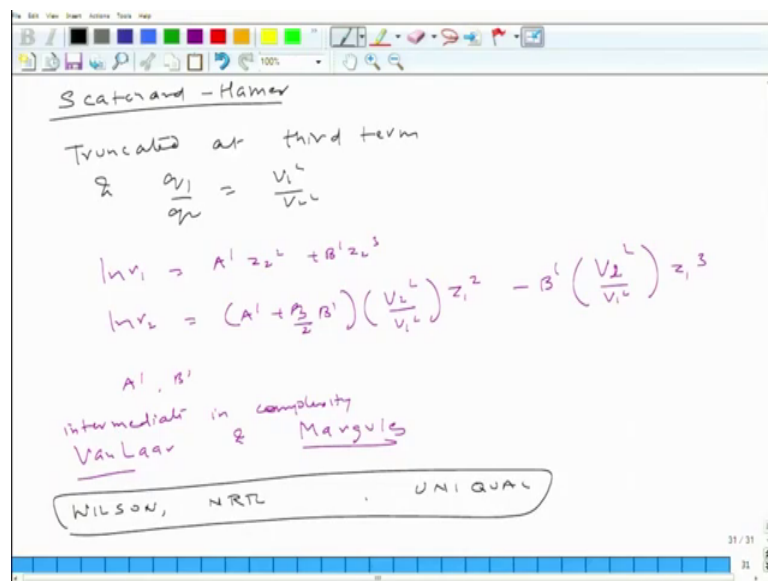 File Edit View Insert Actions Tools Help
B I
100%
Scatchard - Hamer
Truncated at third term
& q₁/q₂ = V₁ᴸ/V₂ᴸ
ln r₁ = A' z₂² + B' z₂³
ln r₂ = (A' + 3/2 B') (V₂ᴸ/V₁ᴸ) z₁² - B' (V₂ᴸ/V₁ᴸ) z₁³
A', B'
intermediate in complexity
Van Laar & Margules
WILSON, NRTL . UNIQUAC
31 / 31
31